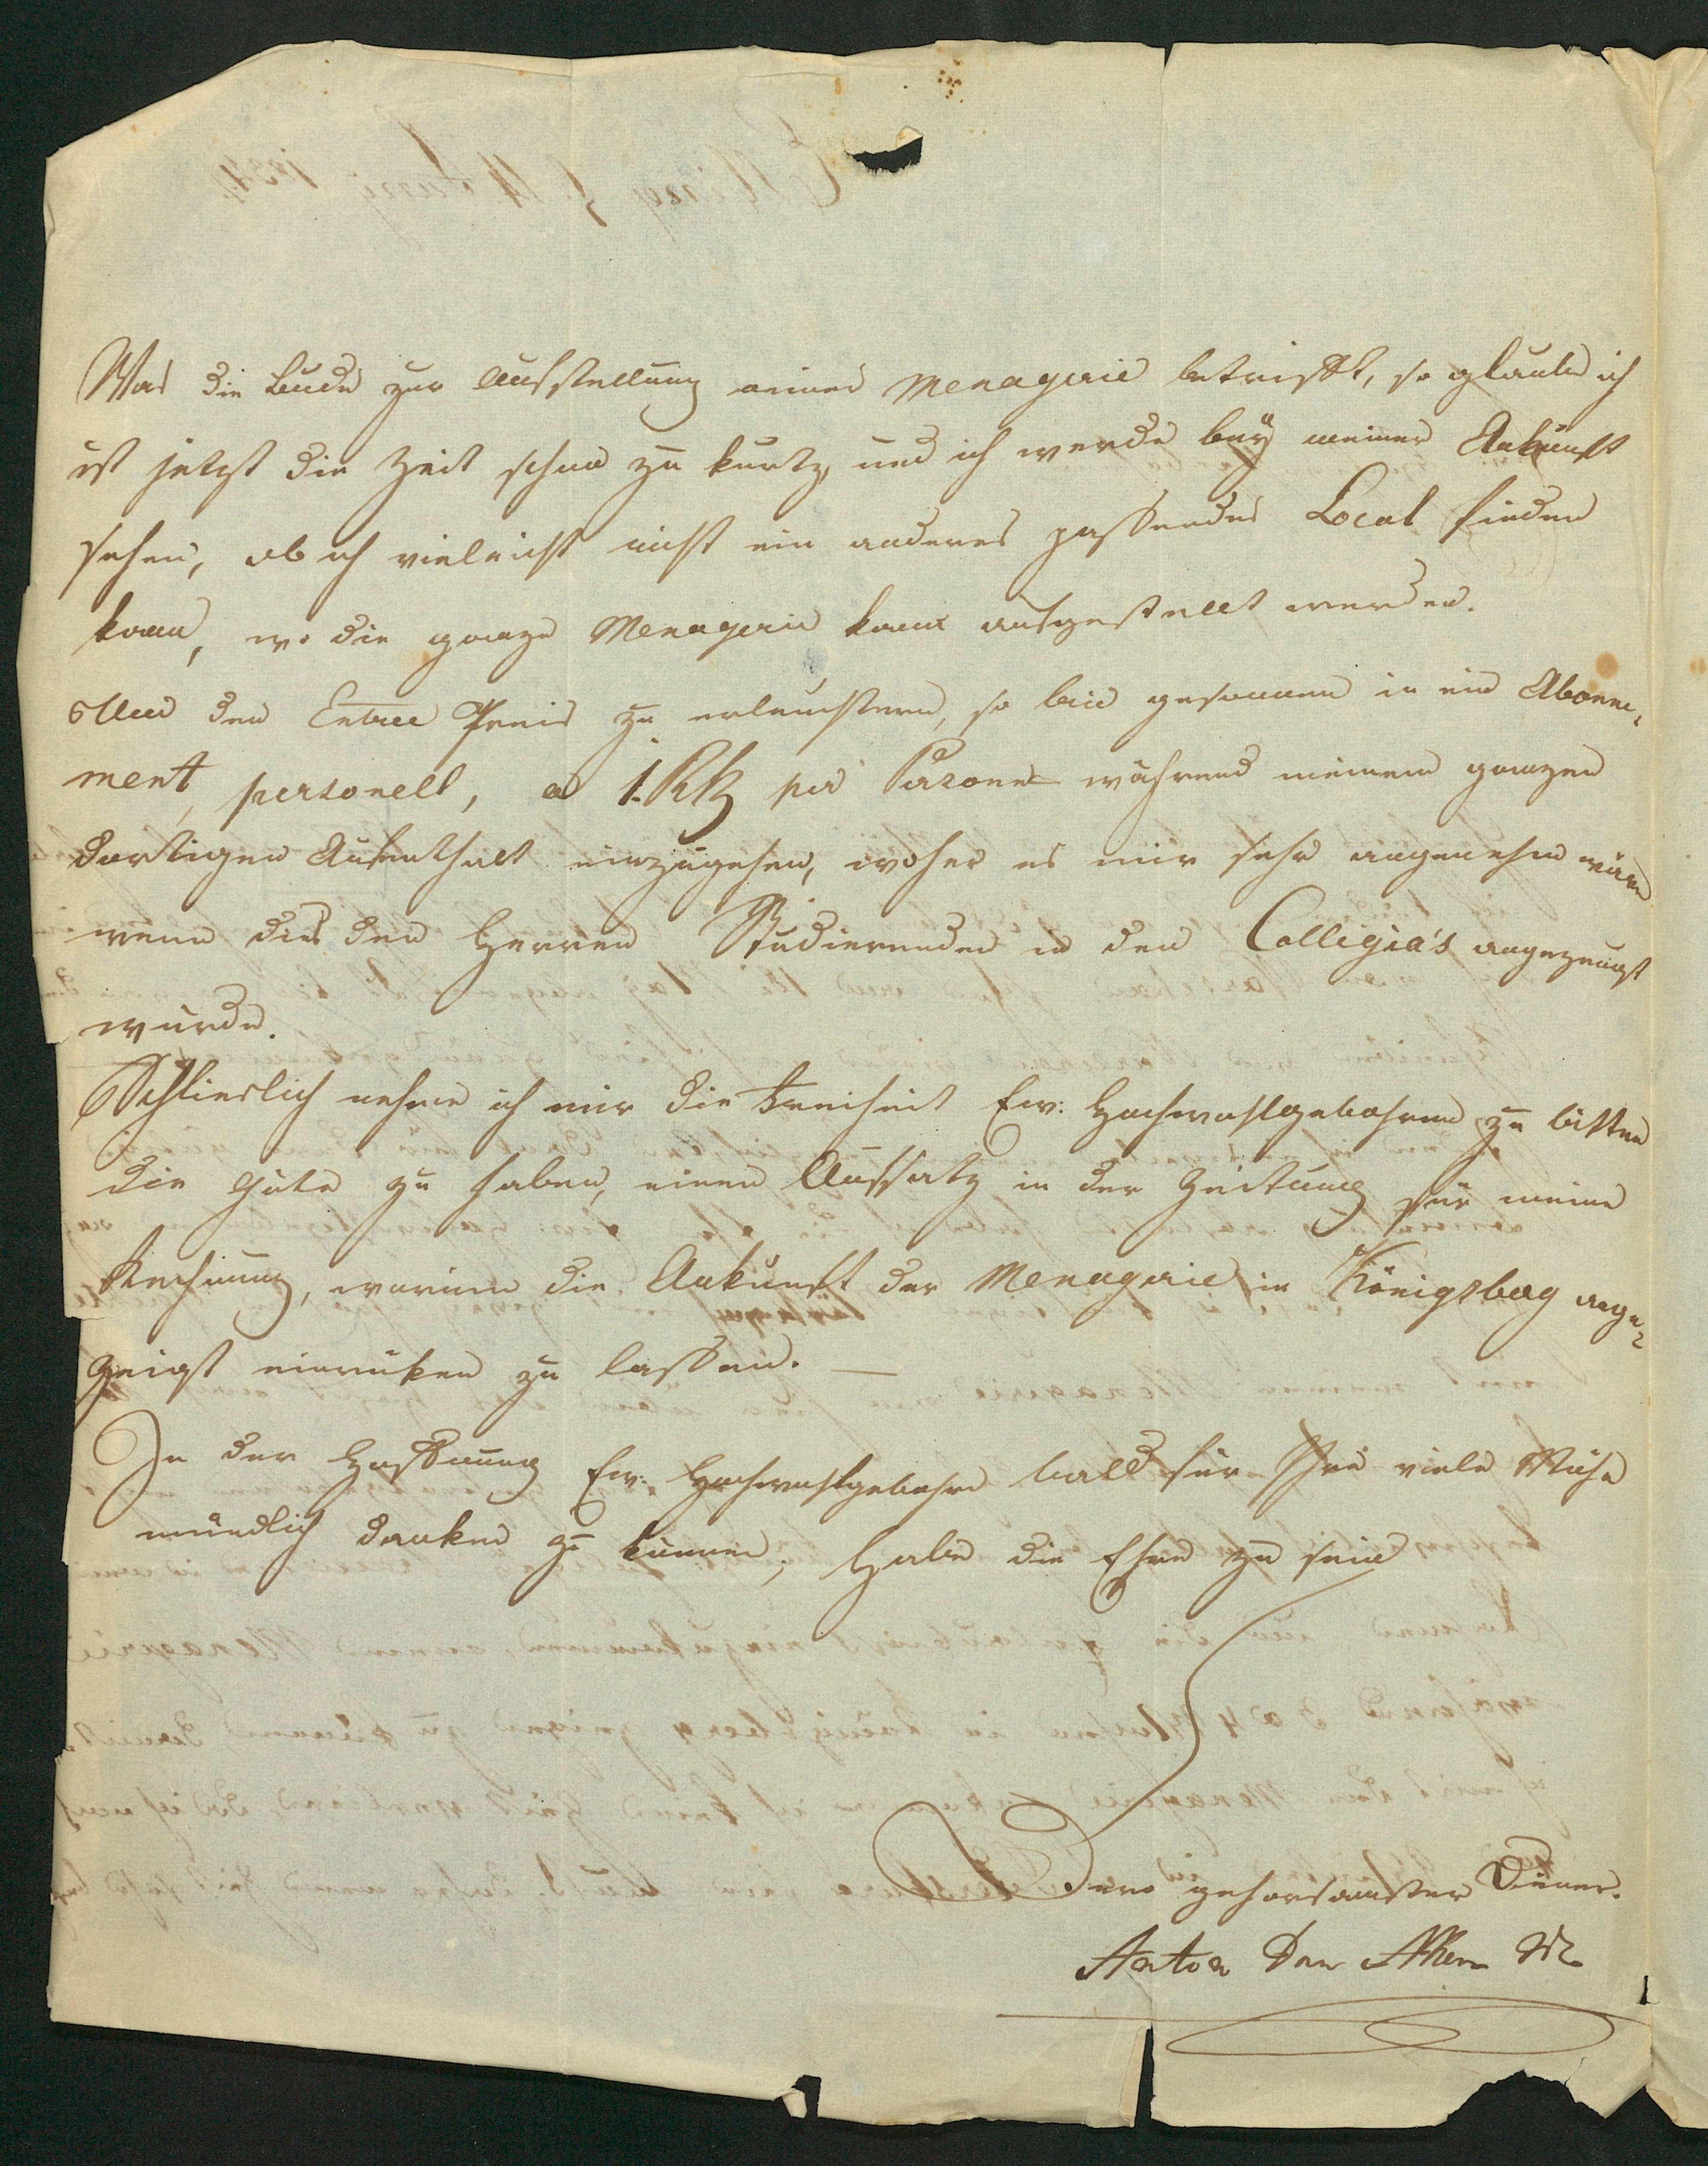 Was die Bude zur Aufstellung meiner Menagerie betrifft, so glaube ich
ist jetzt die Zeit schon zu kurtz, und ich werde beÿ meiner Ankunft
sehen, ob ich vieleicht nicht ein anderes passendes Local finden
kann, wo die ganze Menagerie kann aufgestellt werden.
Um den Entree Preis zu erleuchtern, so bin gesonnen in ein Abonne-
ment, personell, a 1. Rth per Person während meinem ganzen
dortigen Aufenthalt einzugehen, woher es mir sehr angenehm wäre
wenn dies den Herren Studierenden in den Collegia's angezeugt
wurde.
Schlieslich nehme ich mir die Freiheit Ew: Hochwohlgebohren zu bitten
die Güte zu haben, einen Aufsatz in der Zeitung für meine
Rechnung, worinn die Ankunft der Menagerie in Königsberg ange-
zeigt einruken zu lassen. —
In der Hoffnung Ew: Hochwohlgebohrn bald für Ihre viele Mühe
mündlich danken zu können; Habe die Ehre zu sein
Dero gehorsamster Diener.
Anton Van Aken